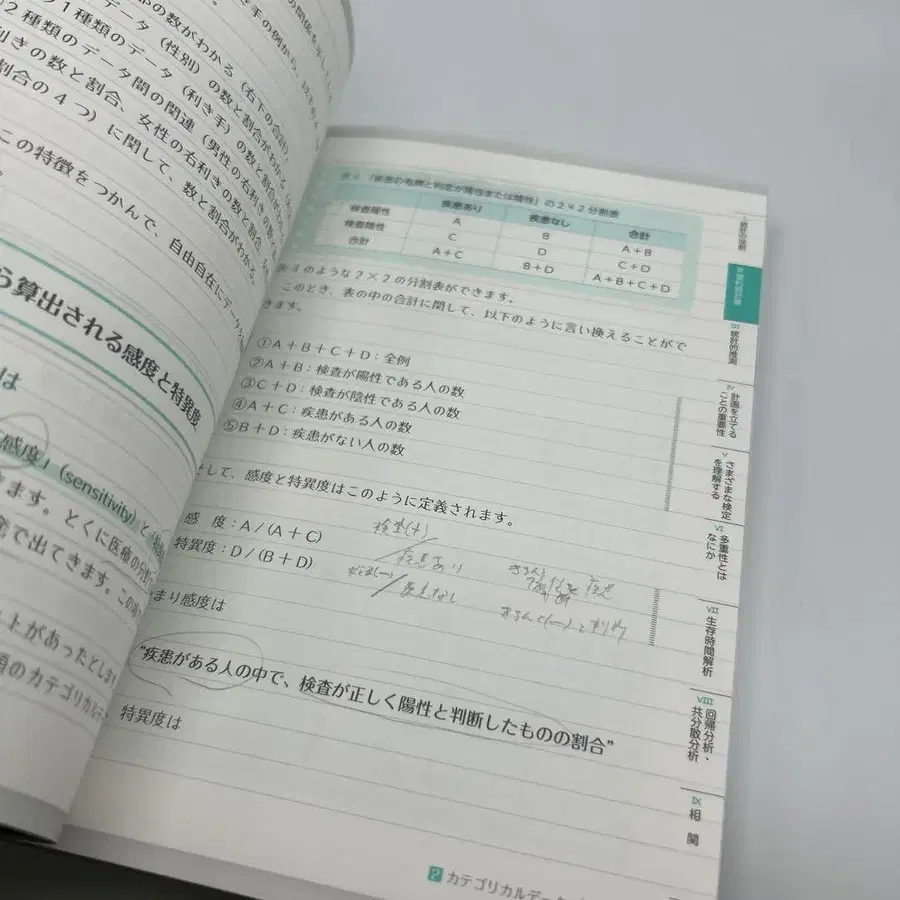 数がわかる（右下の合計）
1種類のデータ（性別）の数と割合がわかる
2種類のデータ間の関連（男性の右利きの数と
利きの数と割合、女性の右利きの数と割合、
割合の4つ）に関して、数と割合がわかる。
この特徴をつかんで、自由自在にデータ
ら算出される感度と特異度
は
感度」(sensitivity) と
ます。とくに医療の分野
発で出てきます。この
トがあったとしま
類のカテゴリカルデータ
表4 「疾患の有無と判定が陽性または陰性」の2×2分割表
疾患あり 疾患なし 合計
検査陽性 A B A＋B
検査陰性 C D C＋D
合計 A＋C B＋D A＋B＋C＋D
表4のような2×2の分割表ができます。
このとき、表の中の合計に関して、以下のように言い換えることがで
きます。
①A＋B＋C＋D：全例
②A＋B：検査が陽性である人の数
③C＋D：検査が陰性である人の数
④A＋C：疾患がある人の数
⑤B＋D：疾患がない人の数
そして、感度と特異度はこのように定義されます。
感 度：A／(A＋C)
特異度：D／(B＋D)
検査(+)
疾患あり
検査(-)
疾患なし
つまり感度は
“疾患がある人の中で、検査が正しく陽性と判断したものの割合”
特異度は
2 カテゴリカルデータ
III 統計的推測
IV 計画を立てることの重要性
V さまざまな検定を理解する
VI 多重性とはなにか
VII 生存時間解析
VIII 回帰分析・共分散分析
IX 相 関